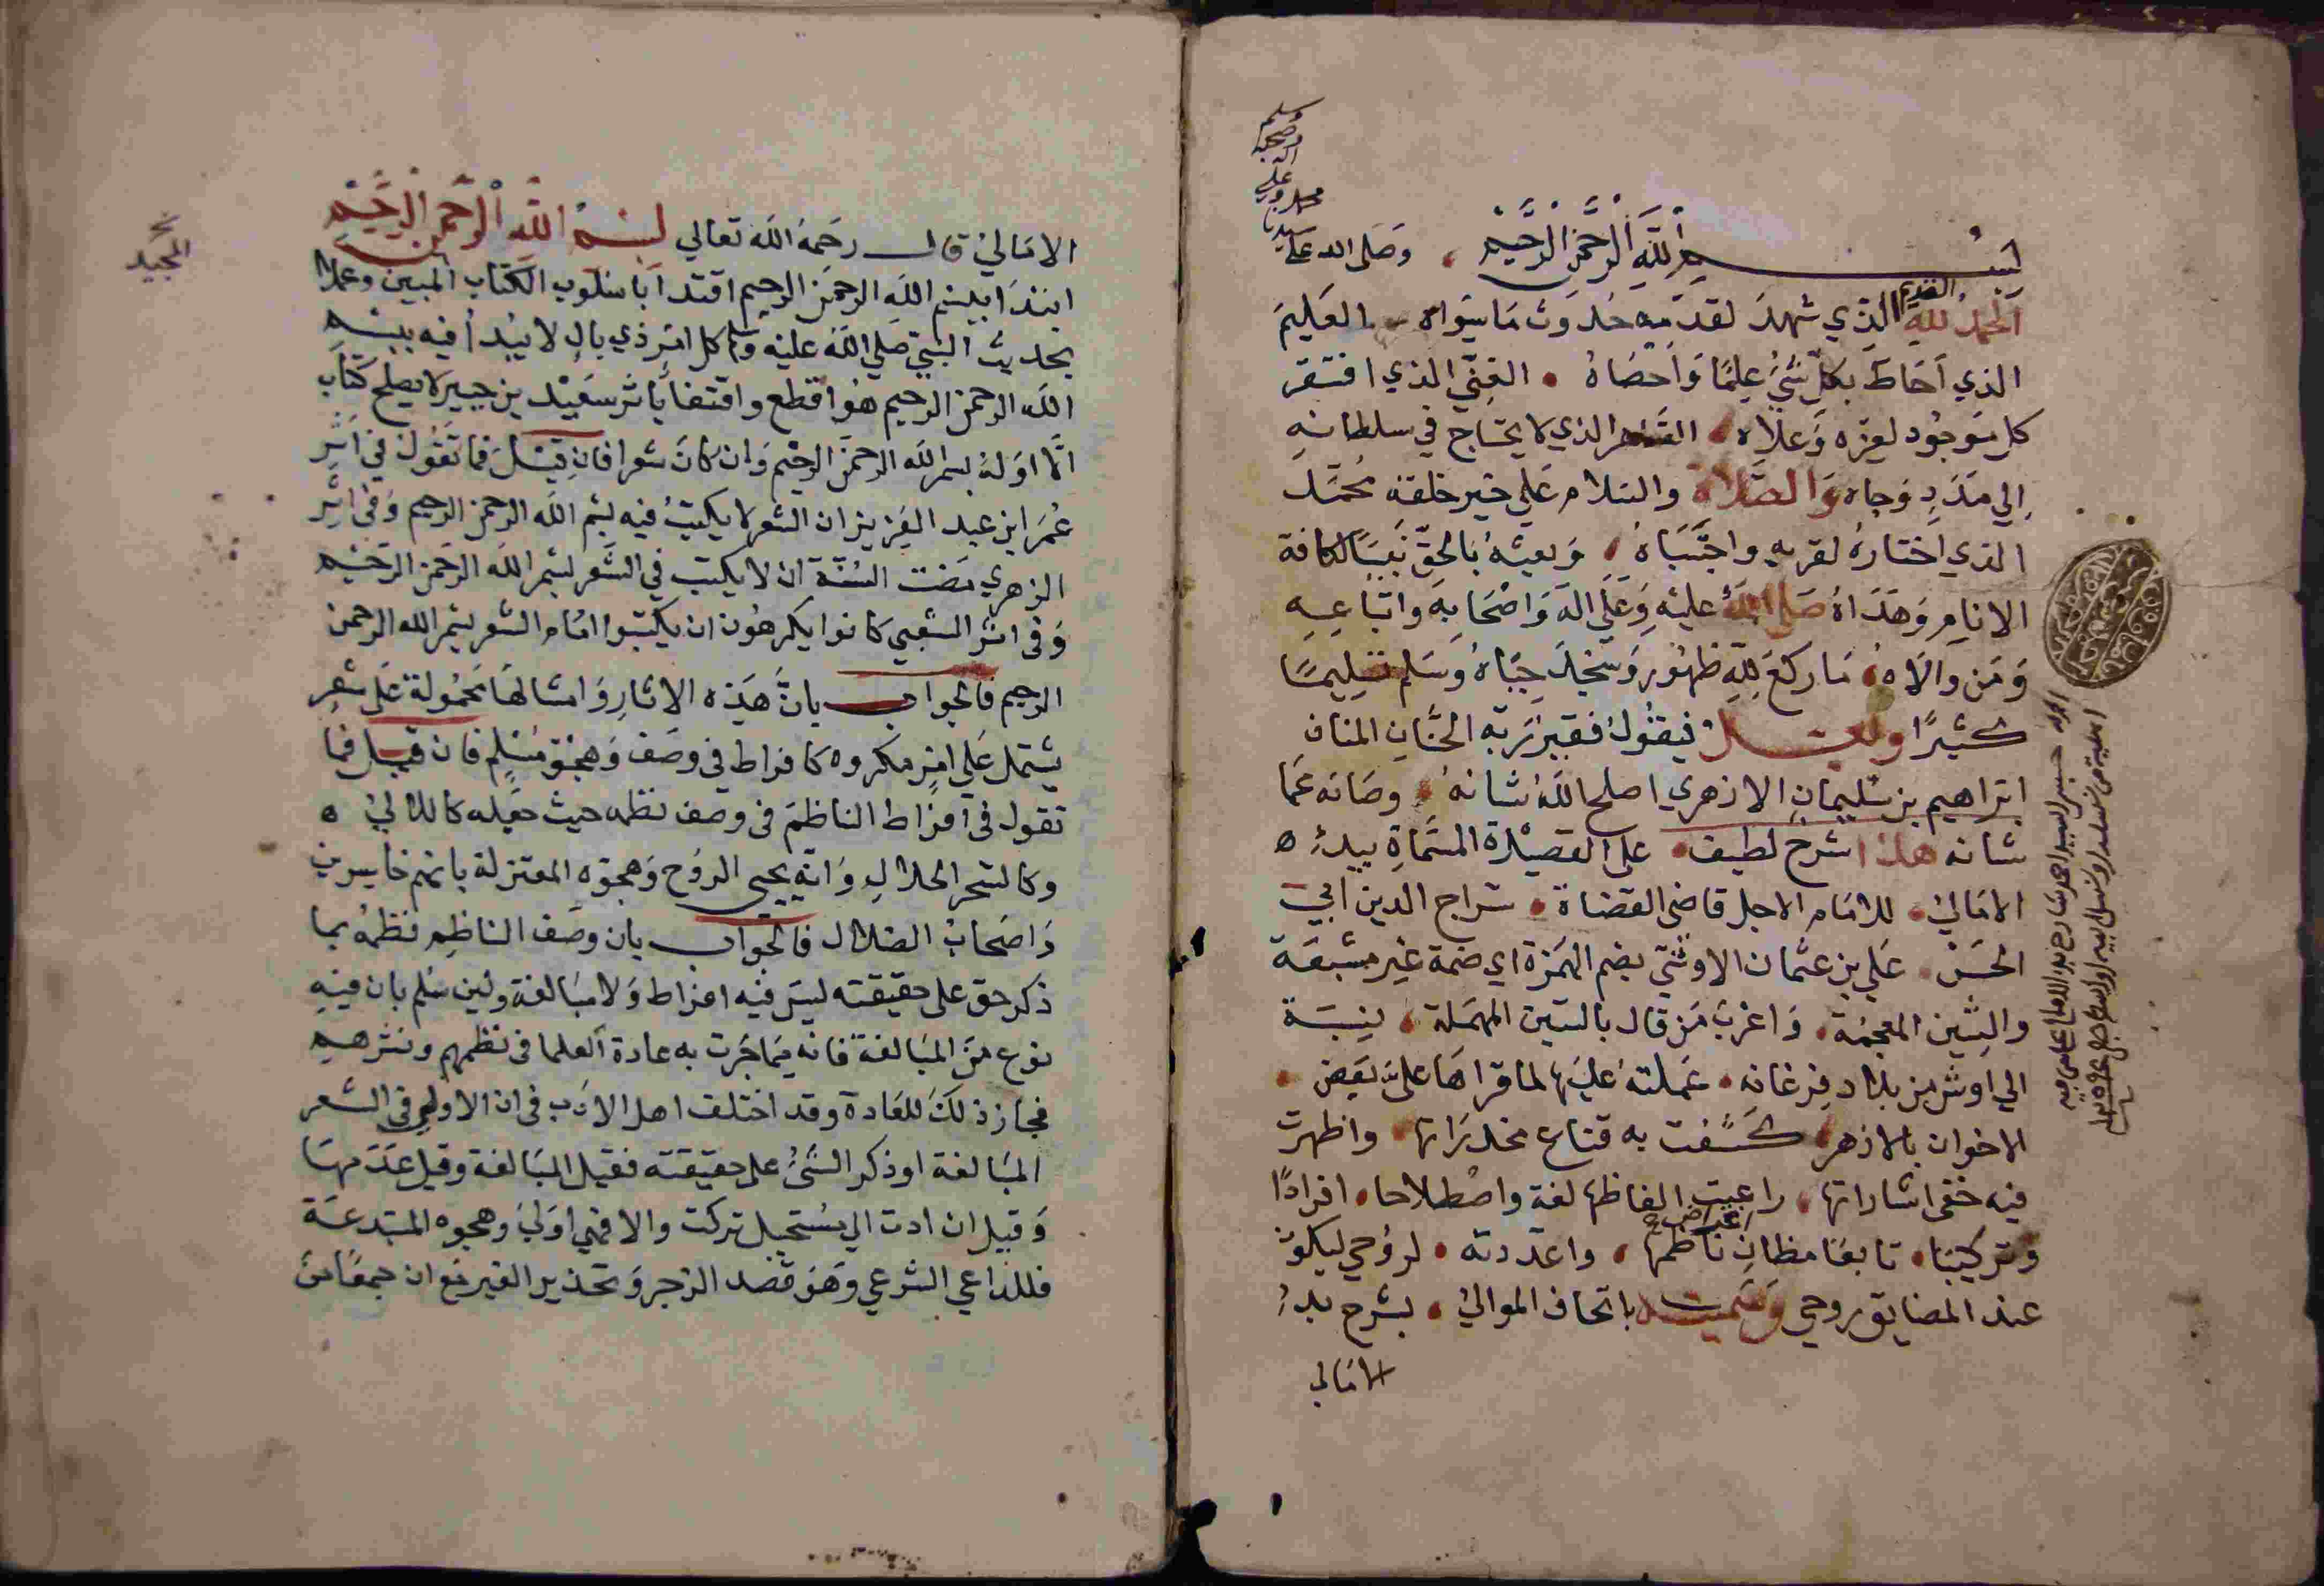 بسم الله الرحمن الرحيم ، وصلى الله على
سيدنا
محمد و
على
اله
وصحبه
وسلم
الحمد لله القديم الذي شهد لقدمه حدوث ما سواه العليم
الذي احاط بكل شئ علما واحصاه • الغني الذي افتقر
كل موجود لعزه وعلاه • الذي لا يحتاج في سلطانه
الي مدد وجاه والصلاة والسلام علي خير خلقه محمد
الذي اختاره لقربه واجتباه ، وبعثه بالحق نبيا لكافة
الانام وهداه صلي الله عليه وعلي اله واصحابه واتباعه
ومن والاه ، ما ركع لله ظهور وسجد جباه وسلم تسليما
كثيرا وبعد فيقول فقير ربه الحنان المنان
ابراهيم بن سليمان الازهري اصلح الله شانه ، وصانه عما
شانه هذا شرح لطيف • على القصيدة المسماة ببدء ه
الامالي • للامام الاجل قاضى القضاة • سراج الدين ابي
الحسن • علي بن عثمان الاوشي بضم الهمزة اي ضمة غير مشبعة
والشين المعجمة • واغرب من قال بالسين المهملة ، نسبة
الي اوش من بلاد فرغانه • عملته عليها لما قراها علي بعض •
الاخوان بالازهر • كشفت به قناع مخدراتها • واظهرت
فيه خفى اشاراتها ، راعيت الفاظها لغة واصطلاحا • افرادا
وتركيبا • تابعا مظان اغراض ناظمها ، واعددته • لروحي ليكون
عند المضايق روحي وسميته باتحاف الموالي • بشرح بدء
الامالي
الامالي قال رحمه الله تعالي بسم الله الرحمن الرحيم
ابتدا ببسم الله الرحمن الرحيم اقتدا باسلوب الكتاب المبين وعملا
بحديث النبي صلي الله عليه وسلم كل امر ذي بال لا يبدا فيه ببسم
الله الرحمن الرحيم هو اقطع واقتفا باثر سعيد بن جبير لا يصلح كتاب
الا اوله بسم الله الرحمن الرحيم وان كان شعرا فان قيل فما تقول في اثر
عمر ابن عبد العزيز ان الشعر لا يكتب فيه بسم الله الرحمن الرحيم وفى اثر
الزهري مضت السنة ان لا يكتب في الشعر بسم الله الرحمن الرحيم
وفى اثر الشعبي كانوا يكرهون ان يكتبوا امام الشعر بسم الله الرحمن
الرحيم فالجواب بان هذه الاثار وامثالها محمولة على شعر
يشتمل على امر مكروه كافراط في وصف وهجو مسلم فان قيل فما
تقول فى افراط الناظم فى وصف نظمه حيث جعله كاللالي ه
وكالسحر الحلال وانه يحيى الروح وهجوه المعتزلة بانهم خاسرين
واصحاب الضلال فالجواب بان وصف الناظم نظمه بما
ذكر حق على حقيقته ليس فيه افراط ولا مبالغة ولئن سلم بان فيه
نوع من المبالغة فانه مما جرت به عادة العلما فى نظمهم ونثرهم
فجاز ذلك للعادة وقد اختلف اهل الادب فى ان الاولي فى الشعر
المبالغة او ذكر الشئ على حقيقته فقيل المبالغة وقيل عدمها
وقيل ان ادت الي مستحيل تركت والا فهي اولى وهجوه المبتدعة
فللداعي الشرعي وهو قصد الزجر وتحذير الغير مع ان جمعا من
المجيد